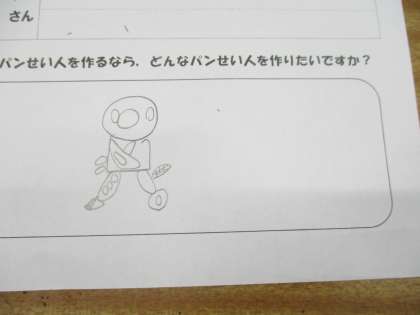 さん
パンせい人を作るなら、どんなパンせい人を作りたいですか？